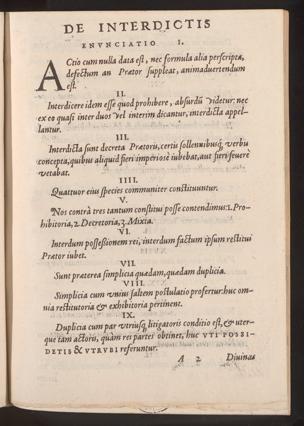 DE INTERDICTIS
ENVNCIATIO I.
ACtio cum nulla data est, nec formula alia perscripta,
defectum an Prætor suppleat, animaduertendum
est.
II.
Interdicere idem esse quod prohibere, absurdũ videtur: nec
ex eo quasi inter duos vel interim dicantur, interdicta appel-
lantur.
III.
Interdicta sunt decreta Prætoris, certis sollennibusq́; verbis
concepta, quibus aliquid fieri imperiosè iubebat, aut fieri seuerè
vetabat.
IIII.
Quattuor eius species communiter constituuntur.
V.
Nos contrà tres tantum constitui posse contendimus: 1. Pro-
hibitoria, 2. Decretoria, 3. Mixta.
VI.
Interdum possessionem rei, interdum factum ipsum restitui
Prætor iubet.
VII.
Sunt præterea simplicia quædam, quædam duplicia.
VIII.
Simplicia cum vnius saltem postulatio profertur: huc om-
nia restitutoria & exhibitoria pertinent.
IX.
Duplicia cum par vtriusq́; litigatoris conditio est, & uter-
que tam actoris, quàm rei partes obtinet, huc VTI POSSI-
DETIS & VTRVBI referuntur.
A 2 Diuinas